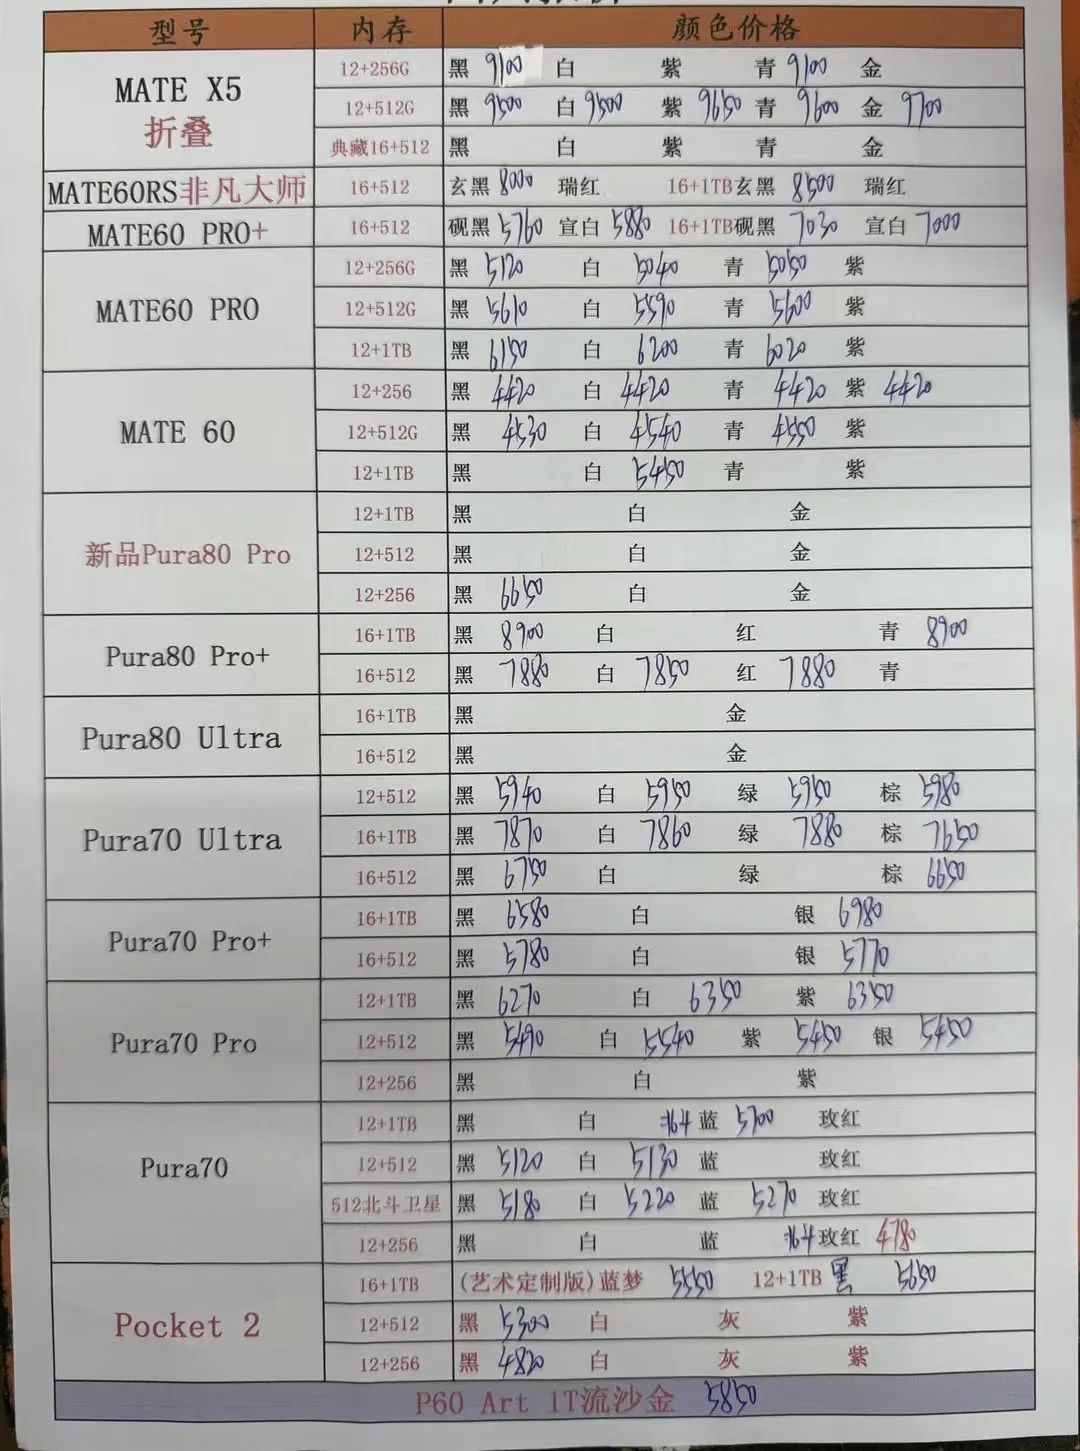 型号 内存 颜色价格
MATE X5 折叠
12+256G 黑 9100 白 紫 青 9100 金
12+512G 黑 9500 白 9500 紫 9650 青 9600 金 9700
典藏16+512 黑 白 紫 青 金
MATE60RS非凡大师 16+512 玄黑 8000 瑞红 16+1TB玄黑 8500 瑞红
MATE60 PRO+ 16+512 砚黑 5760 宣白 5880 16+1TB砚黑 7030 宣白 7000
MATE60 PRO
12+256G 黑 5120 白 5040 青 5050 紫
12+512G 黑 5610 白 5590 青 5600 紫
12+1TB 黑 6150 白 6200 青 6020 紫
MATE 60
12+256 黑 4420 白 4420 青 4420 紫 4420
12+512G 黑 4530 白 4540 青 4550 紫
12+1TB 黑 白 5450 青 紫
新品Pura80 Pro
12+1TB 黑 白 金
12+512 黑 白 金
12+256 黑 6650 白 金
Pura80 Pro+
16+1TB 黑 8900 白 红 青 8900
16+512 黑 7880 白 7850 红 7880 青
Pura80 Ultra
16+1TB 黑 金
16+512 黑 金
Pura70 Ultra
12+512 黑 5940 白 5950 绿 5950 棕 5980
16+1TB 黑 7870 白 7860 绿 7880 棕 7650
16+512 黑 6750 白 绿 棕 6650
Pura70 Pro+
16+1TB 黑 6580 白 银 6980
16+512 黑 5780 白 银 5770
Pura70 Pro
12+1TB 黑 6270 白 6350 紫 6350
12+512 黑 5490 白 5540 紫 5450 银 5450
12+256 黑 白 紫
Pura70
12+1TB 黑 白 北斗 蓝 5700 玫红
12+512 黑 5120 白 5130 蓝 玫红
512北斗卫星 黑 5180 白 5220 蓝 5270 玫红
12+256 黑 白 蓝 北斗 玫红 4780
Pocket 2
16+1TB (艺术定制版)蓝梦 5550 12+1TB 黑 5650
12+512 黑 5300 白 灰 紫
12+256 黑 4820 白 灰 紫
P60 Art 1T流沙金 5850